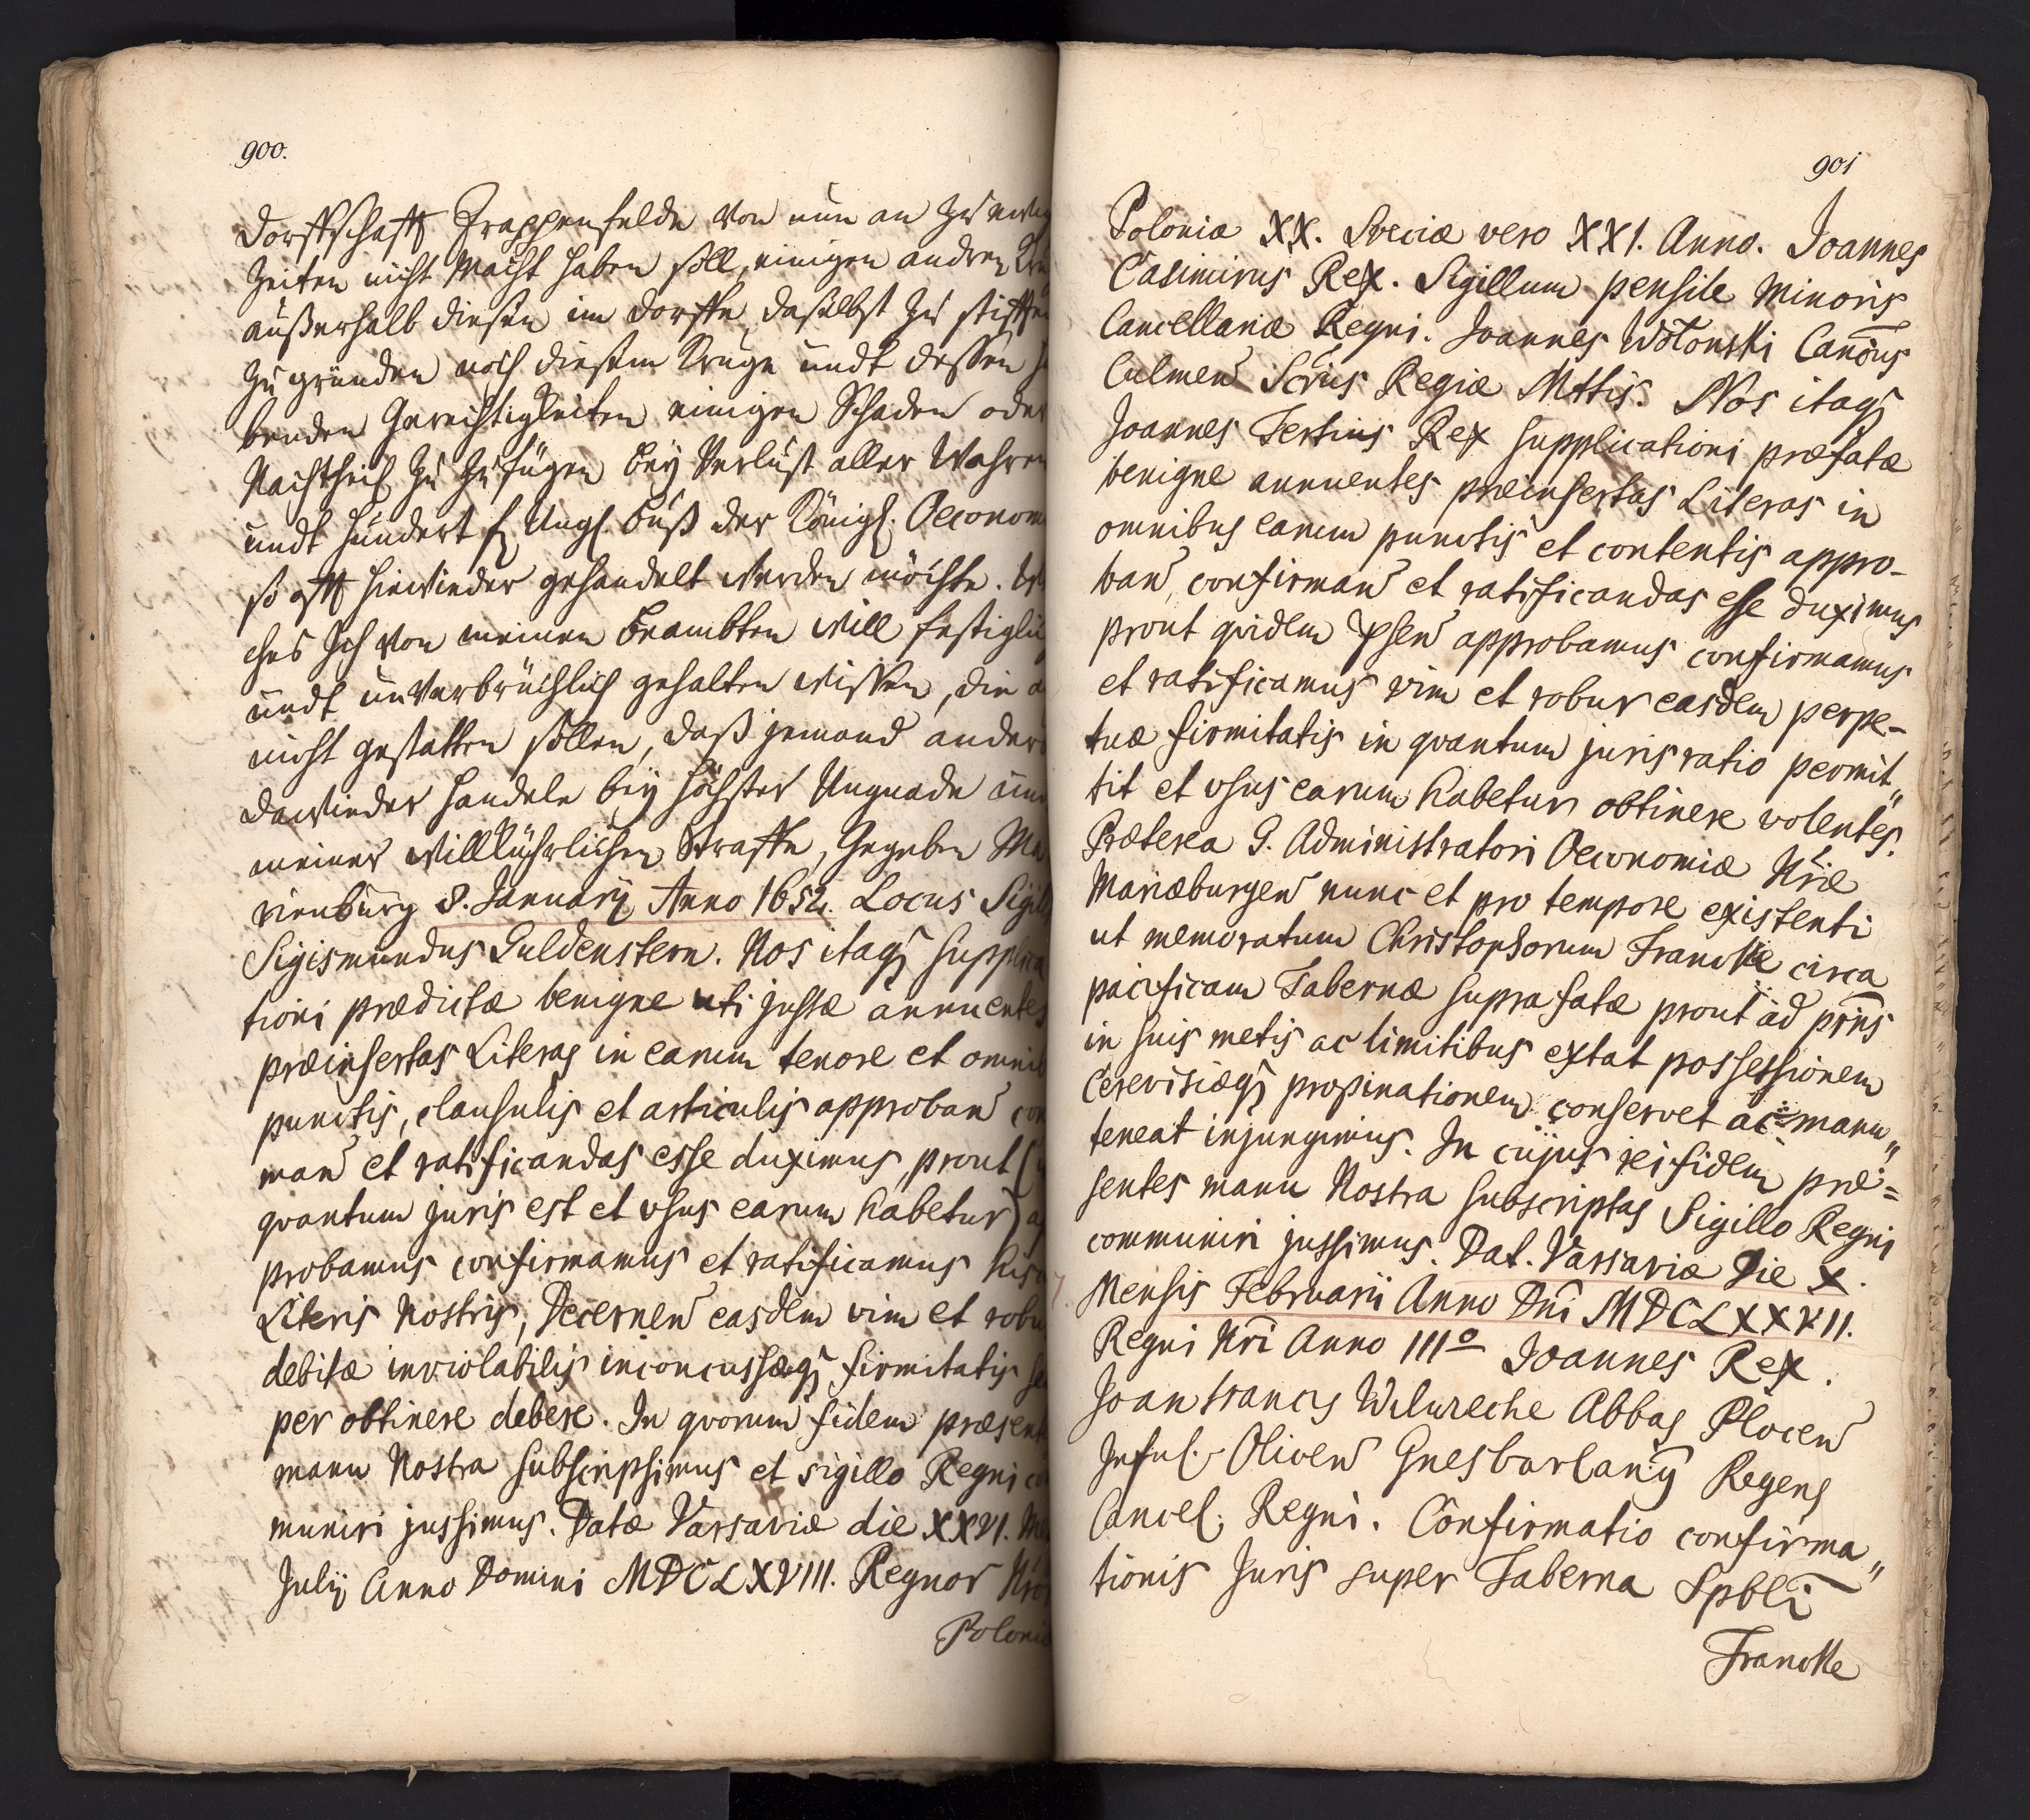 900.
Dorffschafft Trappenfelde von nun an zu
Zeiten nicht Macht haben soll, einigen andren
außerhalb diesen im Dorffe, daselbst zu stifften
zu gründen noch diesem Kruge undt dessen
benden Gerechtigkeiten einigen Schaden oder
Nachtheil zu zufügen bey Verlust aller Wahren
undt hundert fl Ung. buß der Königl. Oeconom
so offt hiewieder gehandelt werden möchte.
ches Ich von meinen Beambten will festiglich
undt unverbrüchlich gehalten wissen, die a
nicht gestatten sollen, daß jemand anders
dawieder handele bey höchster Ungnade und
meiner willkührlichen Straffe, Gegeben Ma
rienburg 8. Januarij Anno 1652. Locus Sigill
Sigismundus Guldenstern. Nos itaq₃ supplica
tioni prædictæ benigne uti justæ annuentes
præinsertas Literas in earum tenore et omnib
punctis, clausulis et articulis approban̄ con
man̄ et ratificandas esse duximus, prout (
qvantum juris est et usus earum habetur) ap
probamus confirmamus et ratificamus hisc
Literis Nostris, Decernen̄ easdem vim et robu
debitæ inviolabilis inconcussæq₃ firmitatis se
per obtinere debere. In qvorum fidem præsent
manu Nostra subscripsimus et sigillo Regni co
muniri jussimus. Datæ Varsaviæ die XXVI. Me
Julij Anno Domini MDCLXVIII. Regnor Nror
Poloniæ
901
Poloniæ XX. Sveciæ vero XXI. Anno. Joannes
Casimirus Rex. Sigillum pensile Minoris
Cancellariæ Regni. Joannes Canōus
Culmen̄ Scrius Regiæ Mttis. Nos itaq₃
Joannes Tertius Rex supplicationi præfatæ
benigne annuentes præinsertas Literas in
omnibus earum punctis et contentis appro-
ban̄, confirman̄ et ratificandas esse duximus
prout qvidem approbamus confirmamus
et ratificamus vim et robur easdem perpe-
tuæ firmitatis in qvantum juris ratio permit„
tit et usus earum habetur obtinere volentes.
Præterea G. Administratori Oeconomiæ Nr̃æ
Mariæburgen̄ nunc et pro tempore existenti
ut memoratum Christophorum Francke circa
pacificam Tabernæ supra fatæ prout ad prñs
in suis metis ac limitibus extat possessionem
Cerevisiæq₃ propinationem conservet ac manu„
teneat injungimus. In cujus rei fidem præ=
sentes manu Nostra subscriptas Sigillo Regni
communiri jussimus. Dat. Varsaviæ Die X.
Mensis Februarii Anno Dñi MDCLXXVII.
Regni Nr̃i Anno III° Joannes Rex.
Abbas Plocen̄
Inful. Oliven̄ Regens
Cancel. Regni. Confirmatio confirma„
tionis Juris super Taberna Spbli
Francke